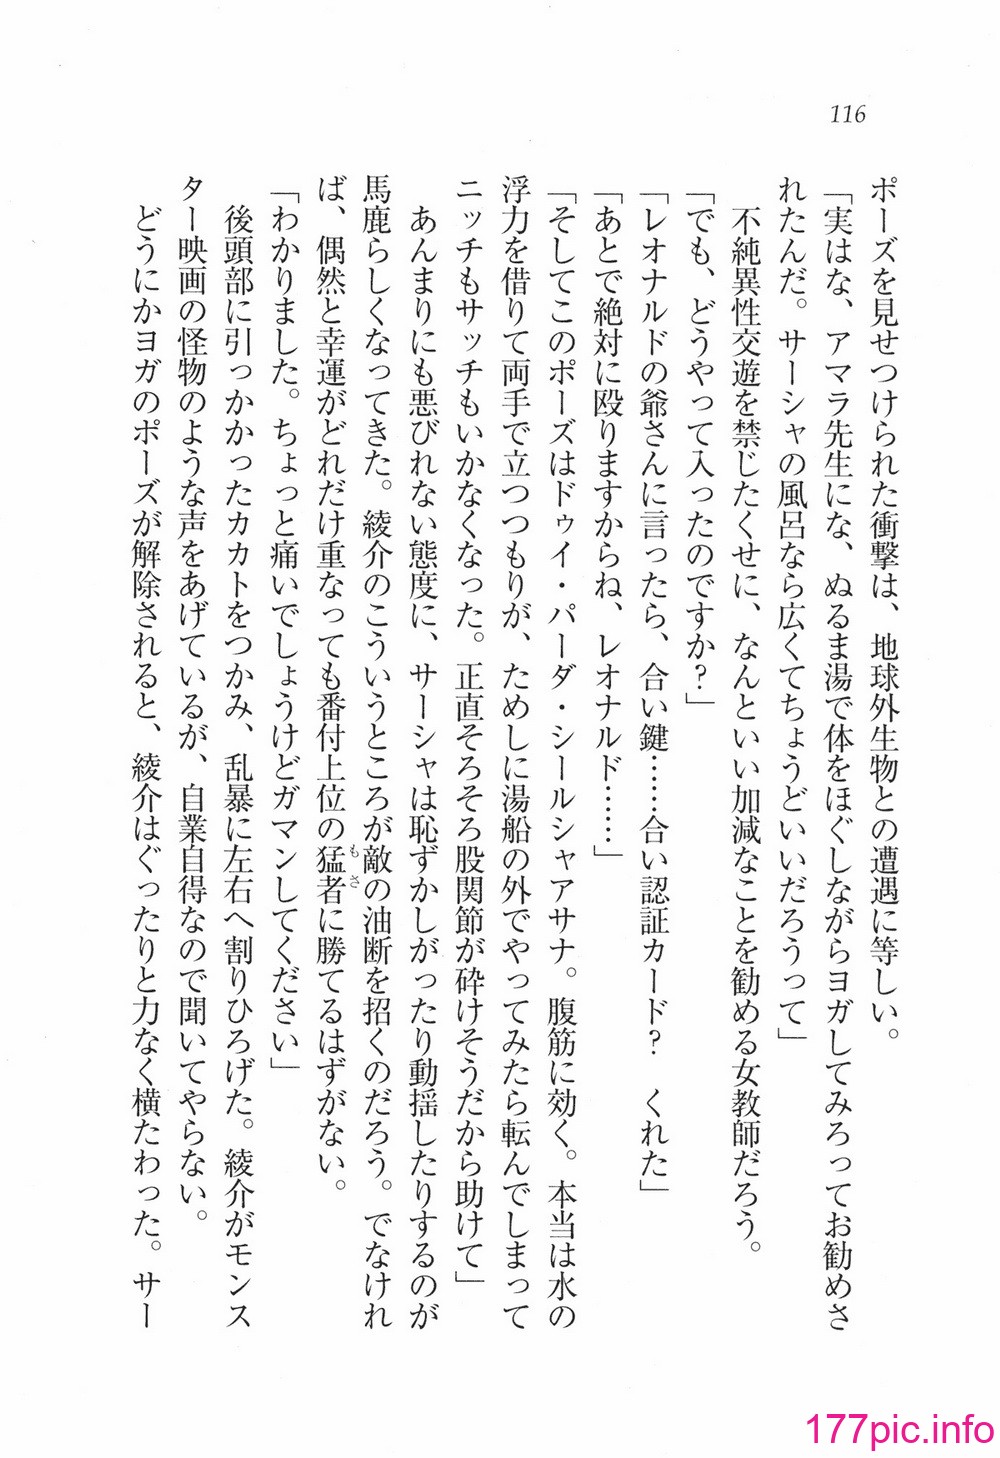 116
ポーズを見せつけられた衝撃は、地球外生物との遭遇に等しい。
「実はな、アマラ先生にな、ぬるま湯で体をほぐしながらヨガしてみろってお勧めさ
れたんだ。サーシャの風呂なら広くてちょうどいいだろうって」
不純異性交遊を禁じたくせに、なんといい加減なことを勧める女教師だろう。
「でも、どうやって入ったのですか？」
「レオナルドの爺さんに言ったら、合い鍵……合い認証カード？　くれた」
「あとで絶対に殴りますからね、レオナルド……」
「そしてこのポーズはドゥイ・パーダ・シールシャアサナ。腹筋に効く。本当は水の
浮力を借りて両手で立つつもりが、ためしに湯船の外でやってみたら転んでしまって
ニッチもサッチもいかなくなった。正直そろそろ股関節が砕けそうだから助けて」
あんまりにも悪びれない態度に、サーシャは恥ずかしがったり動揺したりするのが
馬鹿らしくなってきた。綾介のこういうところが敵の油断を招くのだろう。でなけれ
ば、偶然と幸運がどれだけ重なっても番付上位の猛者に勝てるはずがない。
もさ
「わかりました。ちょっと痛いでしょうけどガマンしてください」
後頭部に引っかかったカカトをつかみ、乱暴に左右へ割りひろげた。綾介がモンス
ター映画の怪物のような声をあげているが、自業自得なので聞いてやらない。
どうにかヨガのポーズが解除されると、綾介はぐったりと力なく横たわった。サー
177pic.info